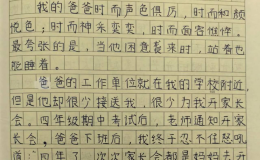 我的爸爸时而声色俱厉，时而和颜
悦色；时而神采奕奕，时而面容憔悴。
最夸张的是，当他困意袭来时，站着也
能睡着。
爸爸的工作单位就在我的学校附近，
但是他却很少接送我，很少为我开家长
会。四年级期中考试后，老师通知开家长
会，爸爸下班后，我终于忍不住怒吼
道：四年了，次次家长会都是妈妈去开